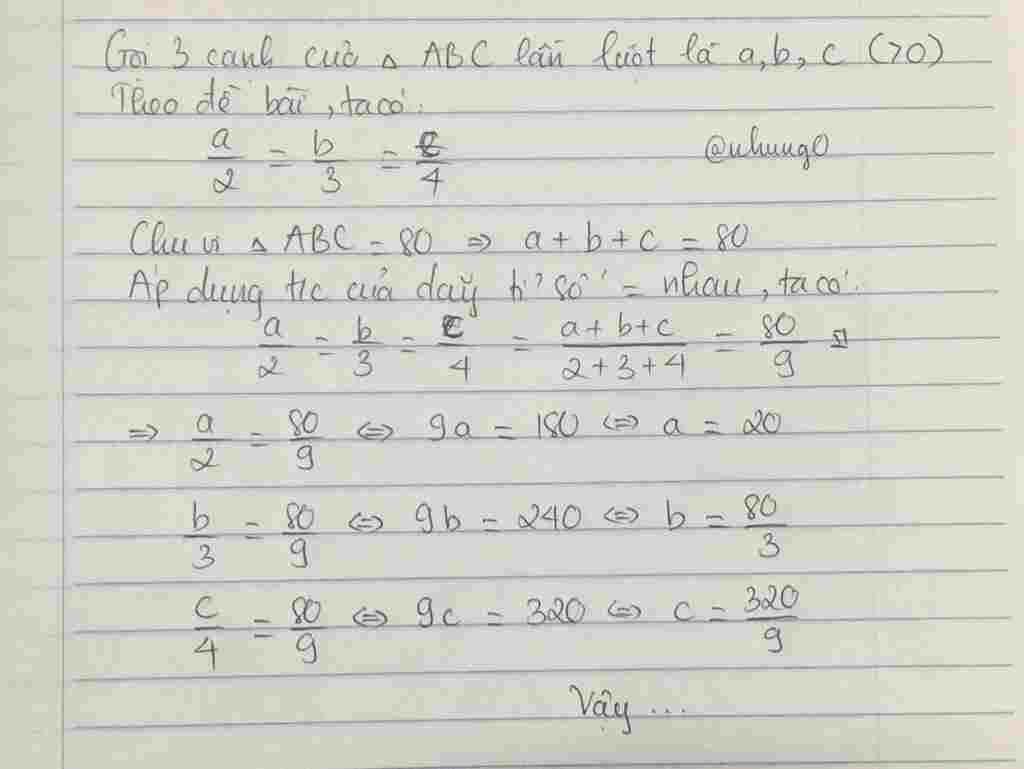 Gọi 3 cạnh của △ ABC lần lượt là a, b, c (>0)
Theo đề bài, ta có:
a/2 = b/3 = c/4
@nhung0
Chu vi △ ABC = 80 => a + b + c = 80
Áp dụng t/c của dãy tỉ số = nhau, ta có:
a/2 = b/3 = c/4 = (a + b + c)/(2 + 3 + 4) = 80/9
=> a/2 = 80/9 <=> 9a = 180 <=> a = 20
b/3 = 80/9 <=> 9b = 240 <=> b = 80/3
c/4 = 80/9 <=> 9c = 320 <=> c = 320/9
Vậy ...